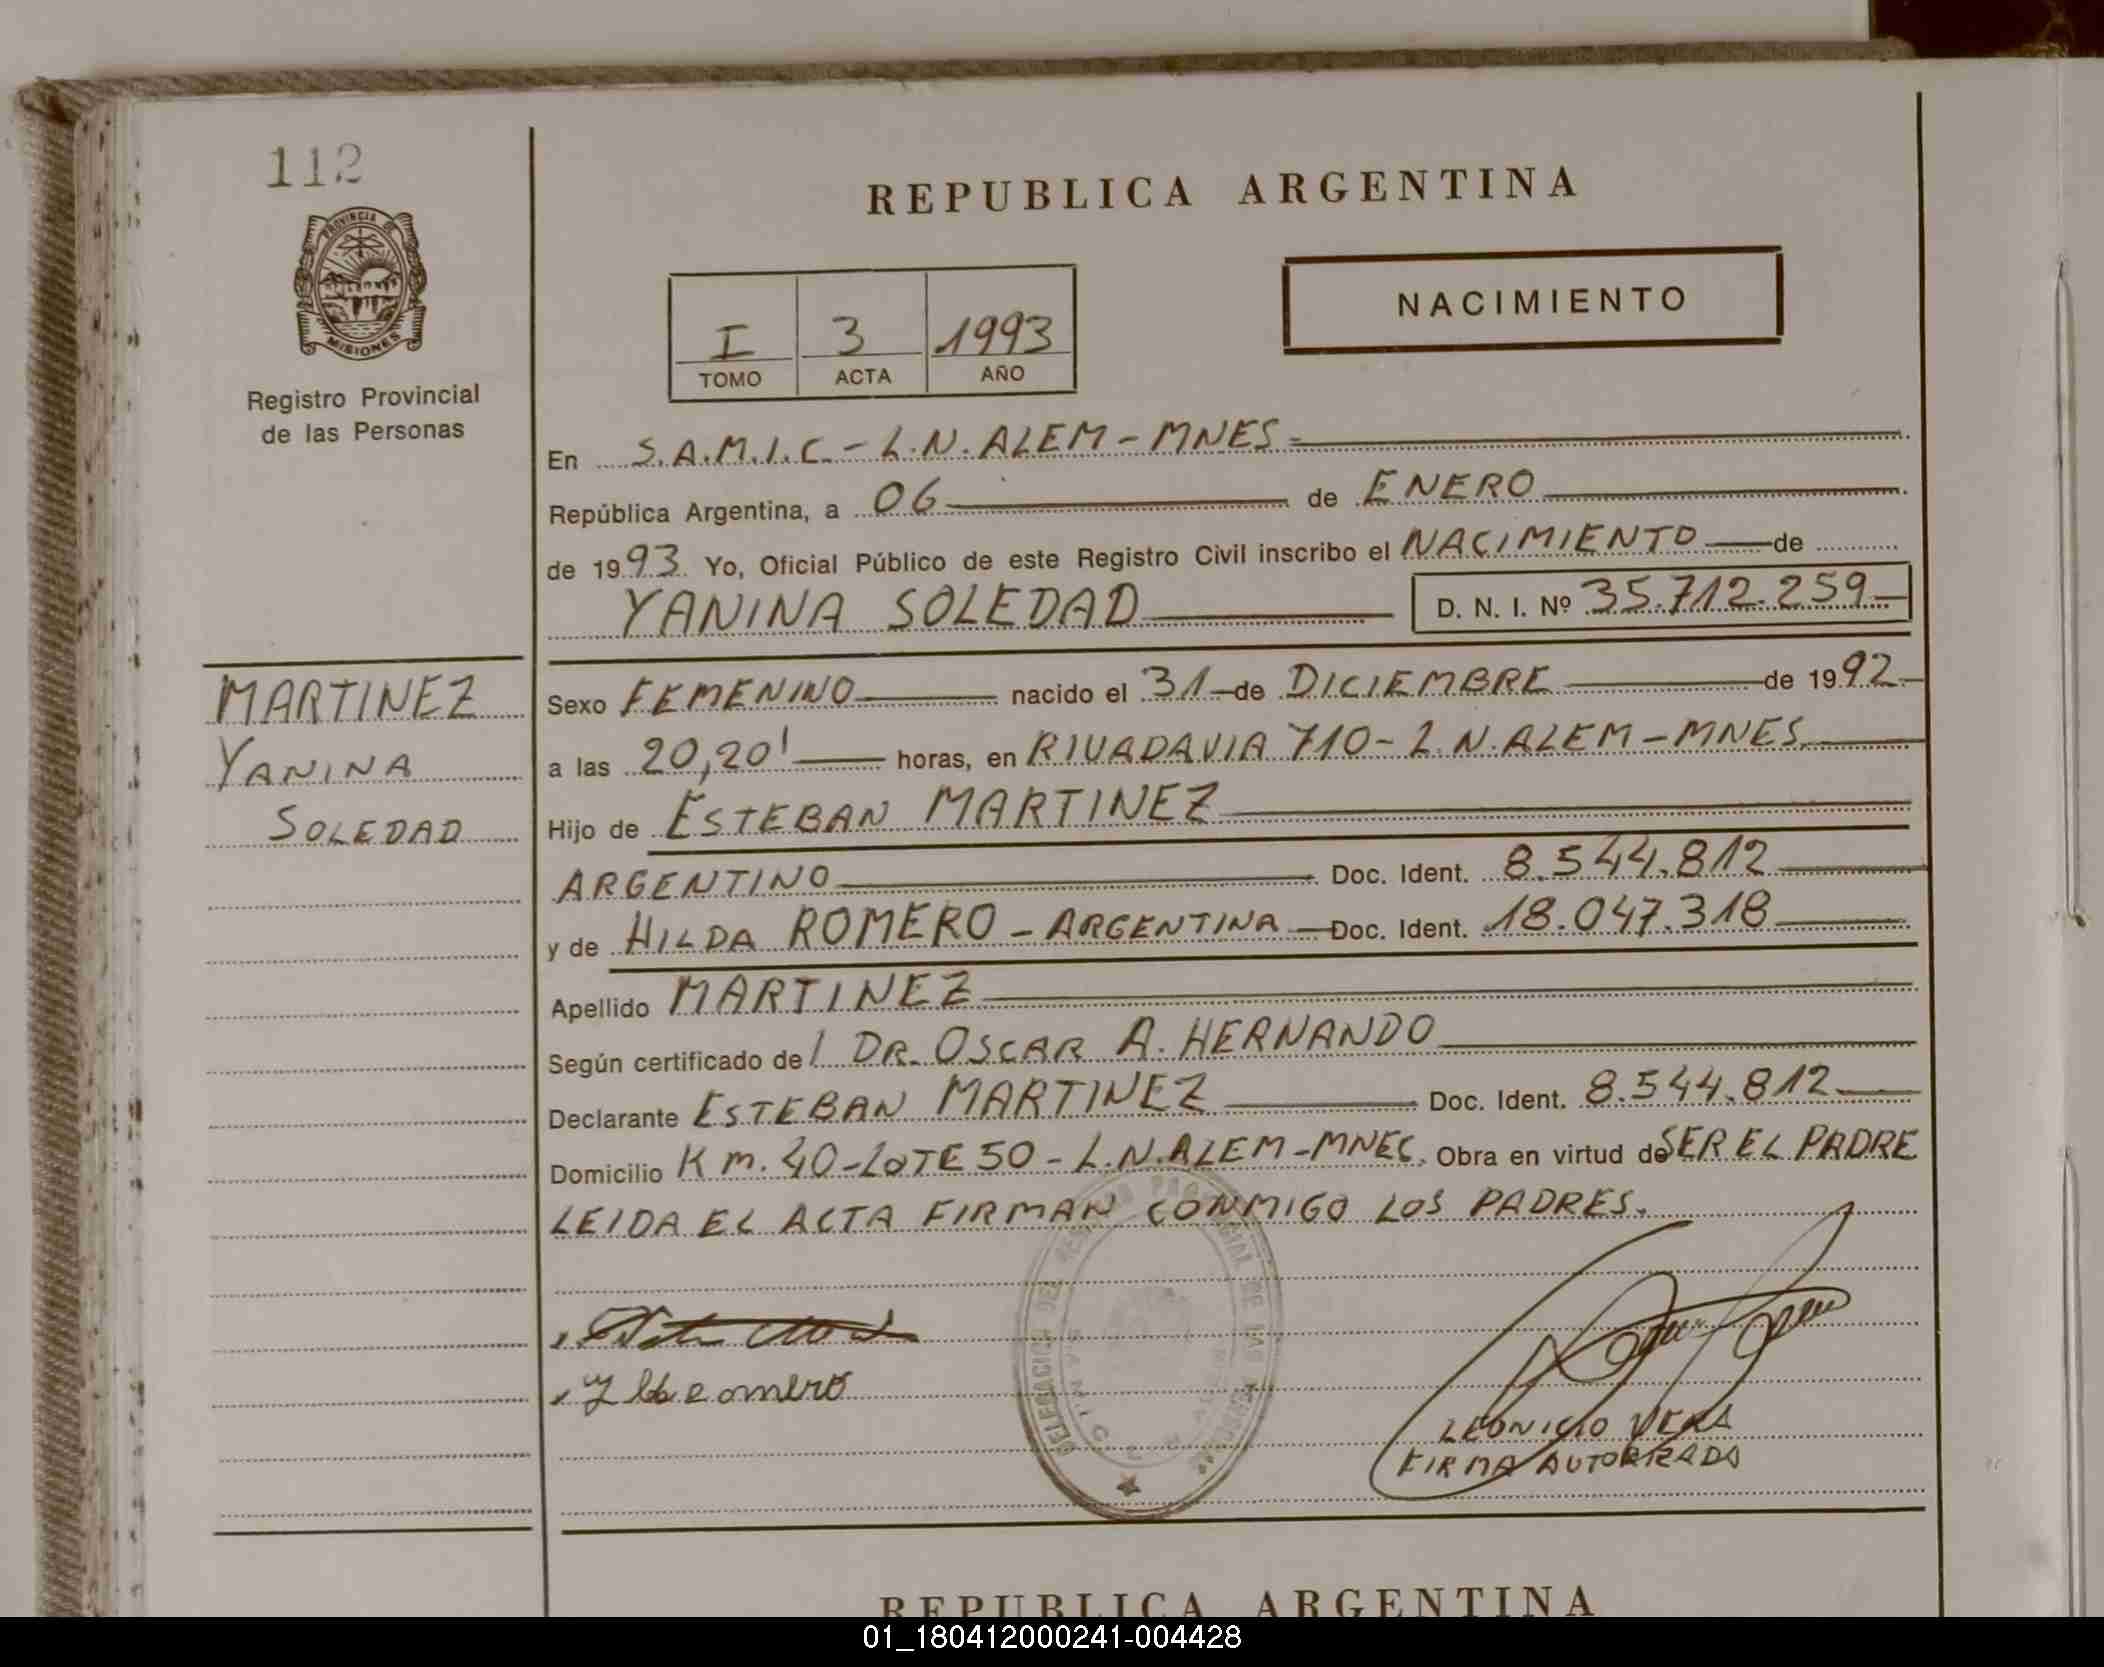 112
PROVINCIA DE
MISIONES
Registro Provincial
de las Personas
MARTINEZ
YANINA
SOLEDAD
REPUBLICA ARGENTINA
I 3 1993
TOMO ACTA AÑO
NACIMIENTO
En S.A.M.I.C. - L.N. ALEM - MNES.
República Argentina, a 06 de ENERO
de 1993. Yo, Oficial Público de este Registro Civil inscribo el NACIMIENTO de
YANINA SOLEDAD D. N. I. Nº 35.712.259
Sexo FEMENINO nacido el 31 de DICIEMBRE de 1992
a las 20,20' horas, en RIVADAVIA 710 - L.N. ALEM - MNES.
Hijo de ESTEBAN MARTINEZ
ARGENTINO Doc. Ident. 8.544.812
y de HILDA ROMERO - ARGENTINA Doc. Ident. 18.047.318
Apellido MARTINEZ
Según certificado del DR. OSCAR A. HERNANDO
Declarante ESTEBAN MARTINEZ Doc. Ident. 8.544.812
Domicilio Km. 40 - LOTE 50 - L.N. ALEM - MNES. Obra en virtud de SER EL PADRE
LEIDA EL ACTA FIRMAN CONMIGO LOS PADRES.
DELEGACION DEL REGISTRO PROVINCIAL DE LAS PERSONAS
LEONICIO VERA
FIRMA AUTORIZADA
REPUBLICA ARGENTINA
01_180412000241-004428